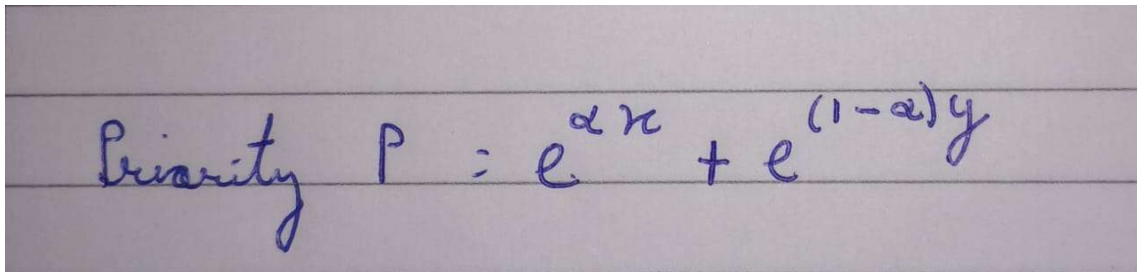 Priority P = e^{αx} + e^{(1-α)y}